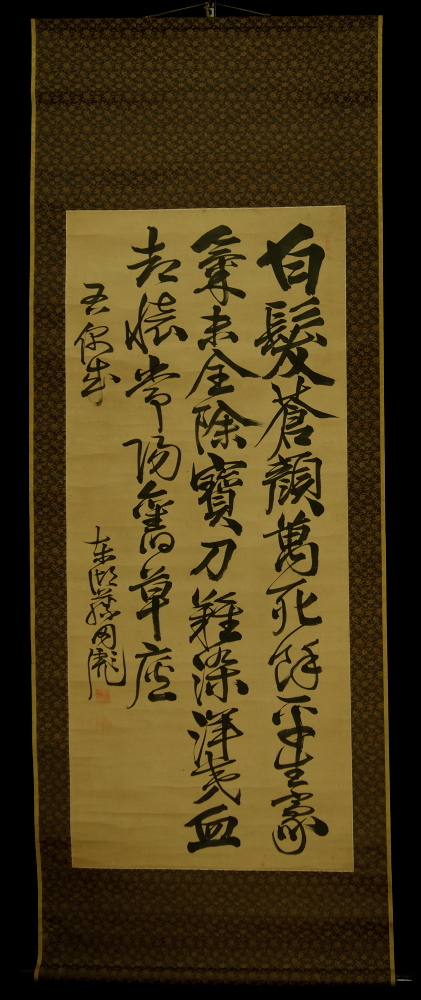 白髮蒼顔萬死餘平生豪
氣未全除寶刀難染洋夷血
却憶常陽舊草廬
偶成
東湖藤田彪